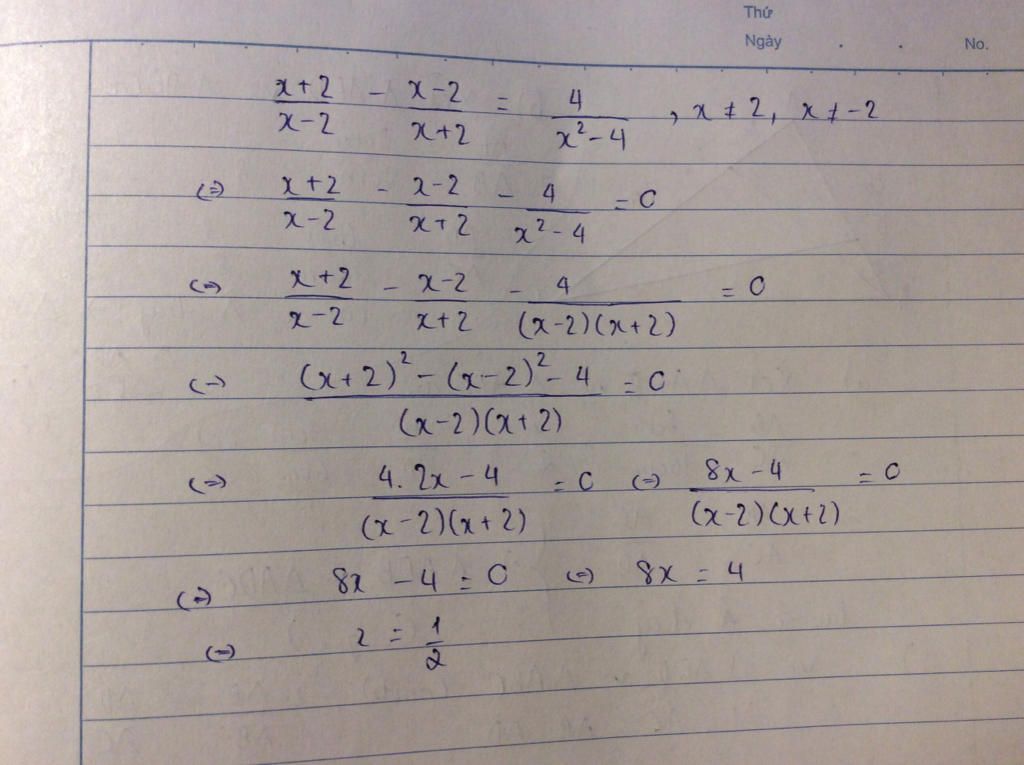 Thứ
Ngày . . No.
(x+2)/(x-2) - (x-2)/(x+2) = 4/(x²-4) , x ≠ 2, x ≠ -2
(=) (x+2)/(x-2) - (x-2)/(x+2) - 4/(x²-4) = 0
(=) (x+2)/(x-2) - (x-2)/(x+2) - 4/((x-2)(x+2)) = 0
(=) ((x+2)²-(x-2)²-4)/((x-2)(x+2)) = 0
(=) (4.2x-4)/((x-2)(x+2)) = 0 (=) (8x-4)/((x-2)(x+2)) = 0
(=) 8x - 4 = 0 (=) 8x = 4
(=) x = 1/2